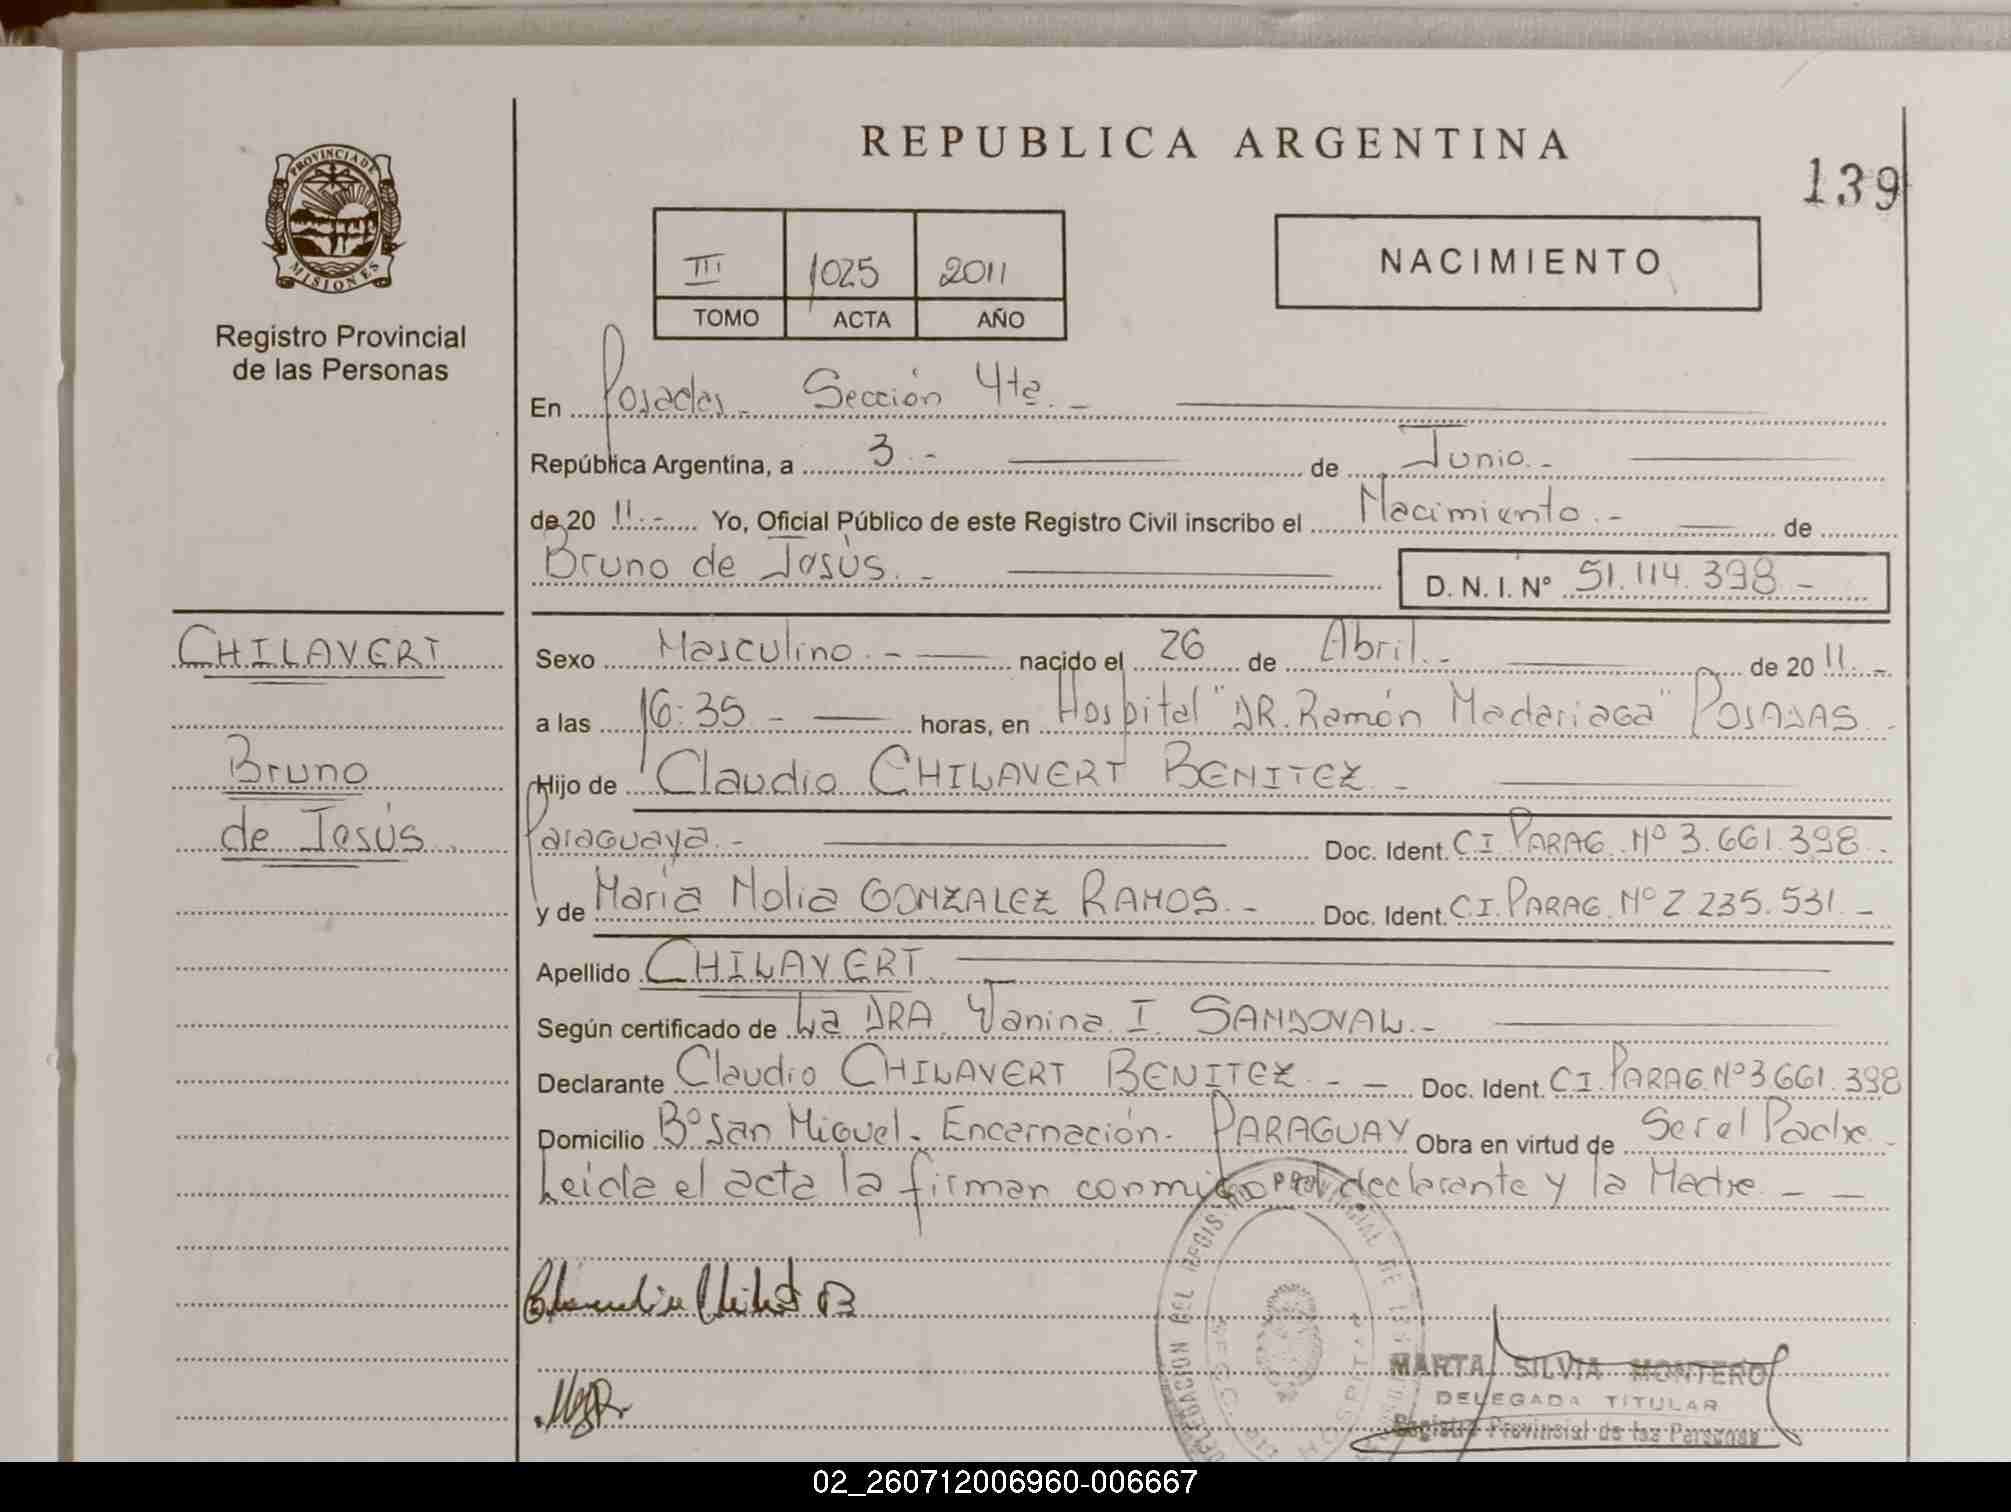 REPUBLICA ARGENTINA
139
PROVINCIA DE
MISIONES
Registro Provincial
de las Personas
III 1025 2011
TOMO ACTA AÑO
NACIMIENTO
En Posadas. Sección 4ta. -
República Argentina, a 3 . - de Junio. -
de 20 11. - Yo, Oficial Público de este Registro Civil inscribo el Nacimiento. - de
Bruno de Jesús. - D. N. I. Nº 51.114.398 -
CHILAVERT
Bruno
de Jesús.
Sexo Masculino. - nacido el 26 de Abril. - de 20 11. -
a las 16:35 - horas, en Hospital "DR. Ramón Madariaga" POSADAS -
Hijo de Claudio CHILAVERT BENITEZ -
Paraguaya. - Doc. Ident. C.I. PARAG. Nº 3.661.398 -
y de María Nolia GONZALEZ RAMOS. - Doc. Ident. C.I. PARAG. Nº 2.235.531. -
Apellido CHILAVERT.
Según certificado de La DRA. Yanina I. SANDOVAL. -
Declarante Claudio CHILAVERT BENITEZ. - - Doc. Ident. C.I. PARAG. Nº 3.661.398
Domicilio Bº San Miguel. Encarnación. PARAGUAY Obra en virtud de Ser el Padre -
Leida el acta la firman conmigo el declarante y la Madre - -
DELEGACION DEL REGISTRO PROVINCIAL DE
MARTA SILVIA MONTERO
DELEGADA TITULAR
Registro Provincial de las Personas
02_260712006960-006667